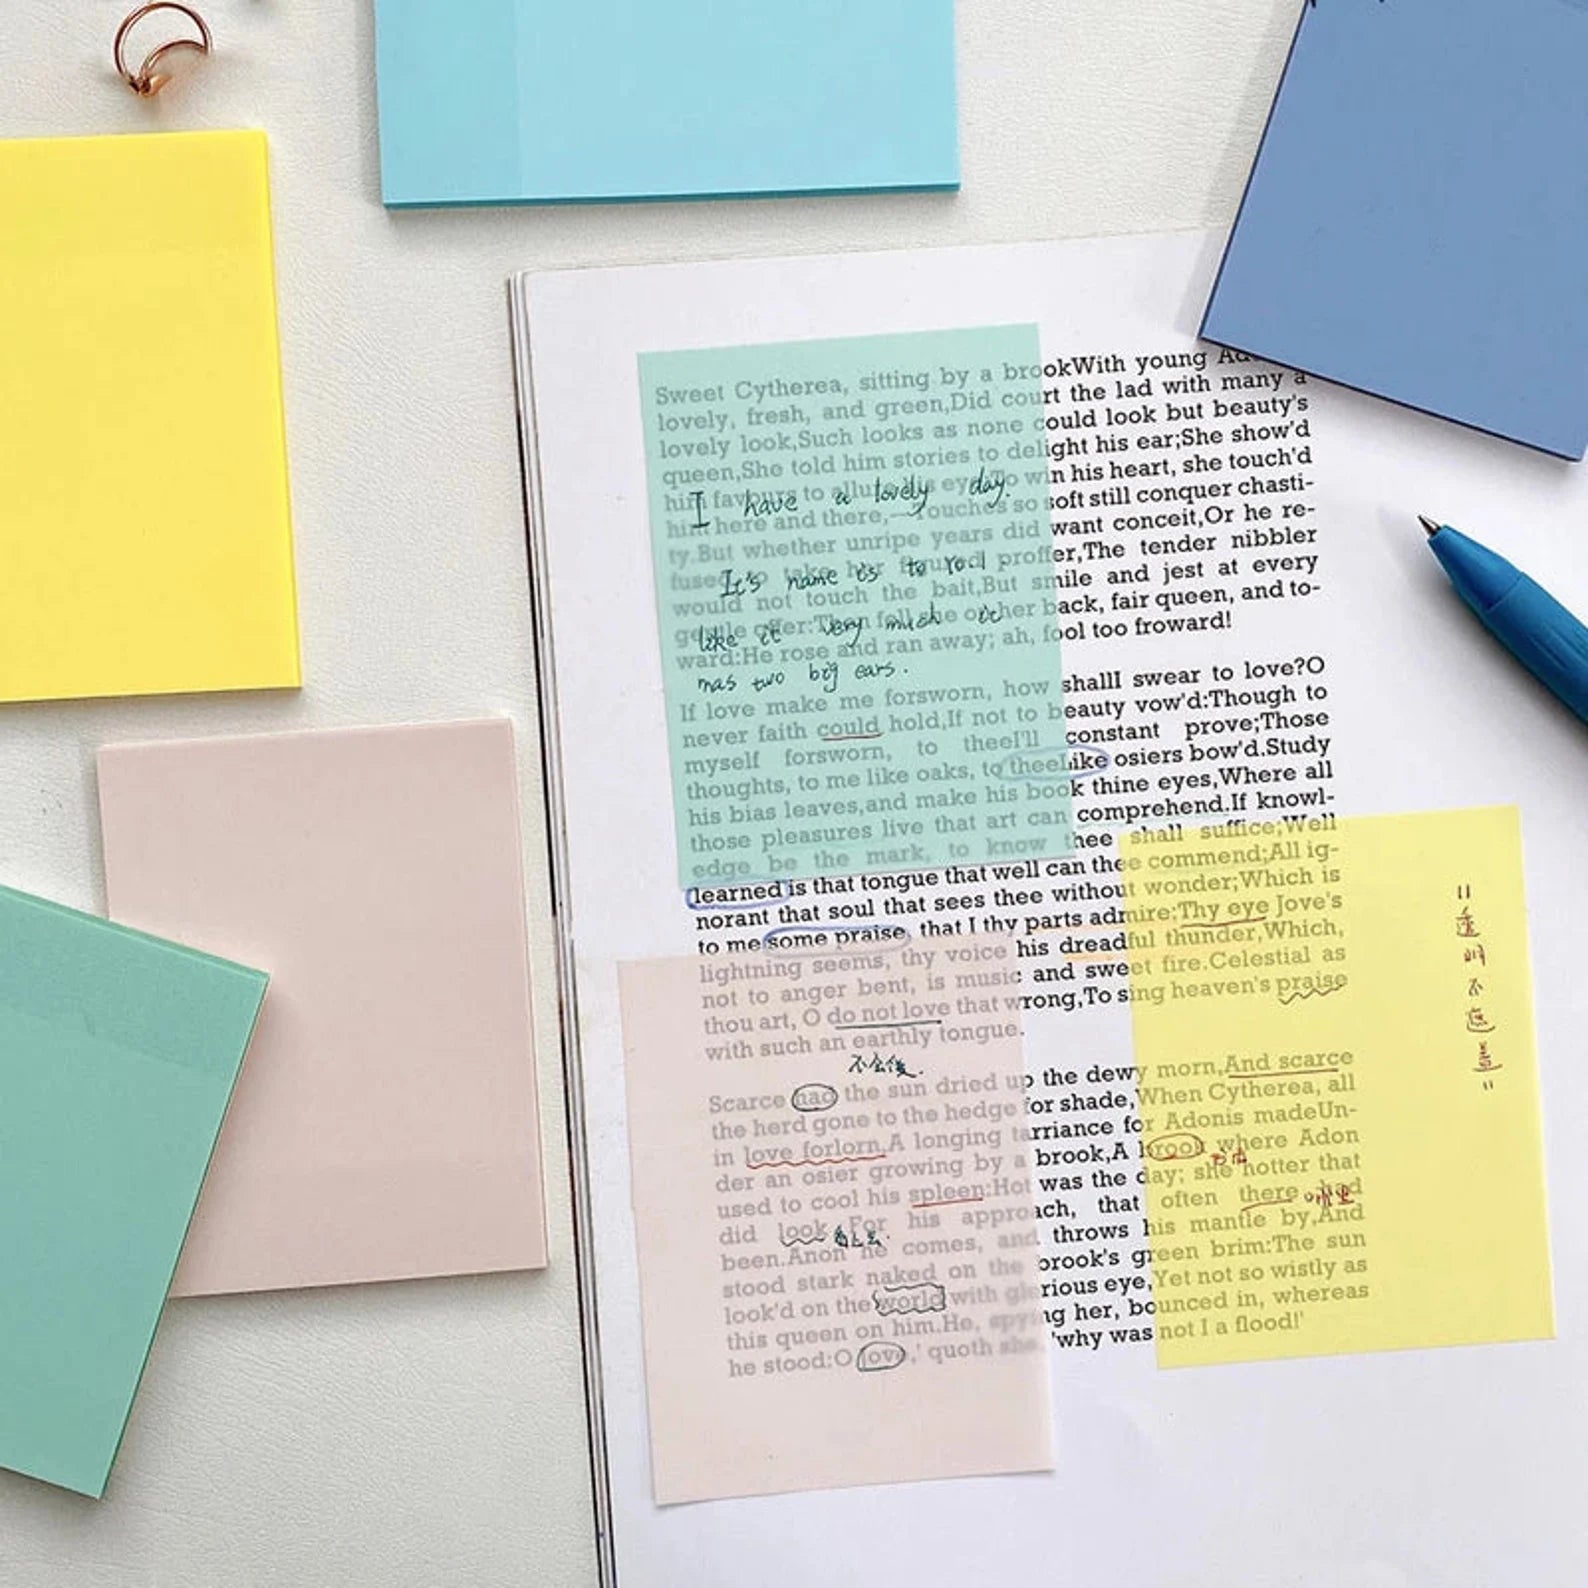 Sweet Cytherea, sitting by a brookWith young
lovely, fresh, and green,Did court the lad with many a
lovely look,Such looks as none could look but beauty's
queen,She told him stories to delight his ear;She show'd
him favours to allure his eye;To win his heart, she touch'd
I have a lovely day.
him here and there,—Touches so soft still conquer chasti-
ty.But whether unripe years did want conceit,Or he re-
fused to take her figured proffer,The tender nibbler
It's name is to rod
would not touch the bait,But smile and jest at every
gentle offer:Then fell she on her back, fair queen, and to-
like it very much it
ward:He rose and ran away; ah, fool too froward!
has two big ears.
If love make me forsworn, how shallI swear to love?O
never faith could hold,If not to beauty vow'd:Though to
myself forsworn, to theeI'll constant prove;Those
thoughts, to me like oaks, to theeLike osiers bow'd.Study
his bias leaves,and make his book thine eyes,Where all
those pleasures live that art can comprehend.If knowl-
edge be the mark, to know thee shall suffice;Well
learned is that tongue that well can thee commend;All ig-
norant that soul that sees thee without wonder;Which is
to me some praise, that I thy parts admire:Thy eye Jove's
lightning seems, thy voice his dreadful thunder,Which,
not to anger bent, is music and sweet fire.Celestial as
thou art, O do not love that wrong,To sing heaven's praise
with such an earthly tongue.
Scarce had the sun dried up the dewy morn,And scarce
the herd gone to the hedge for shade,When Cytherea, all
in love forlorn,A longing tarriance for Adonis madeUn-
der an osier growing by a brook,A brook where Adon
used to cool his spleen:Hot was the day; she hotter that
did look For his approach, that often there had
been.Anon he comes, and throws his mantle by,And
stood stark naked on the brook's green brim:The sun
look'd on the world with glorious eye,Yet not so wistly as
this queen on him.He, spying her, bounced in, whereas
he stood:O love,' quoth she, 'why was not I a flood!'